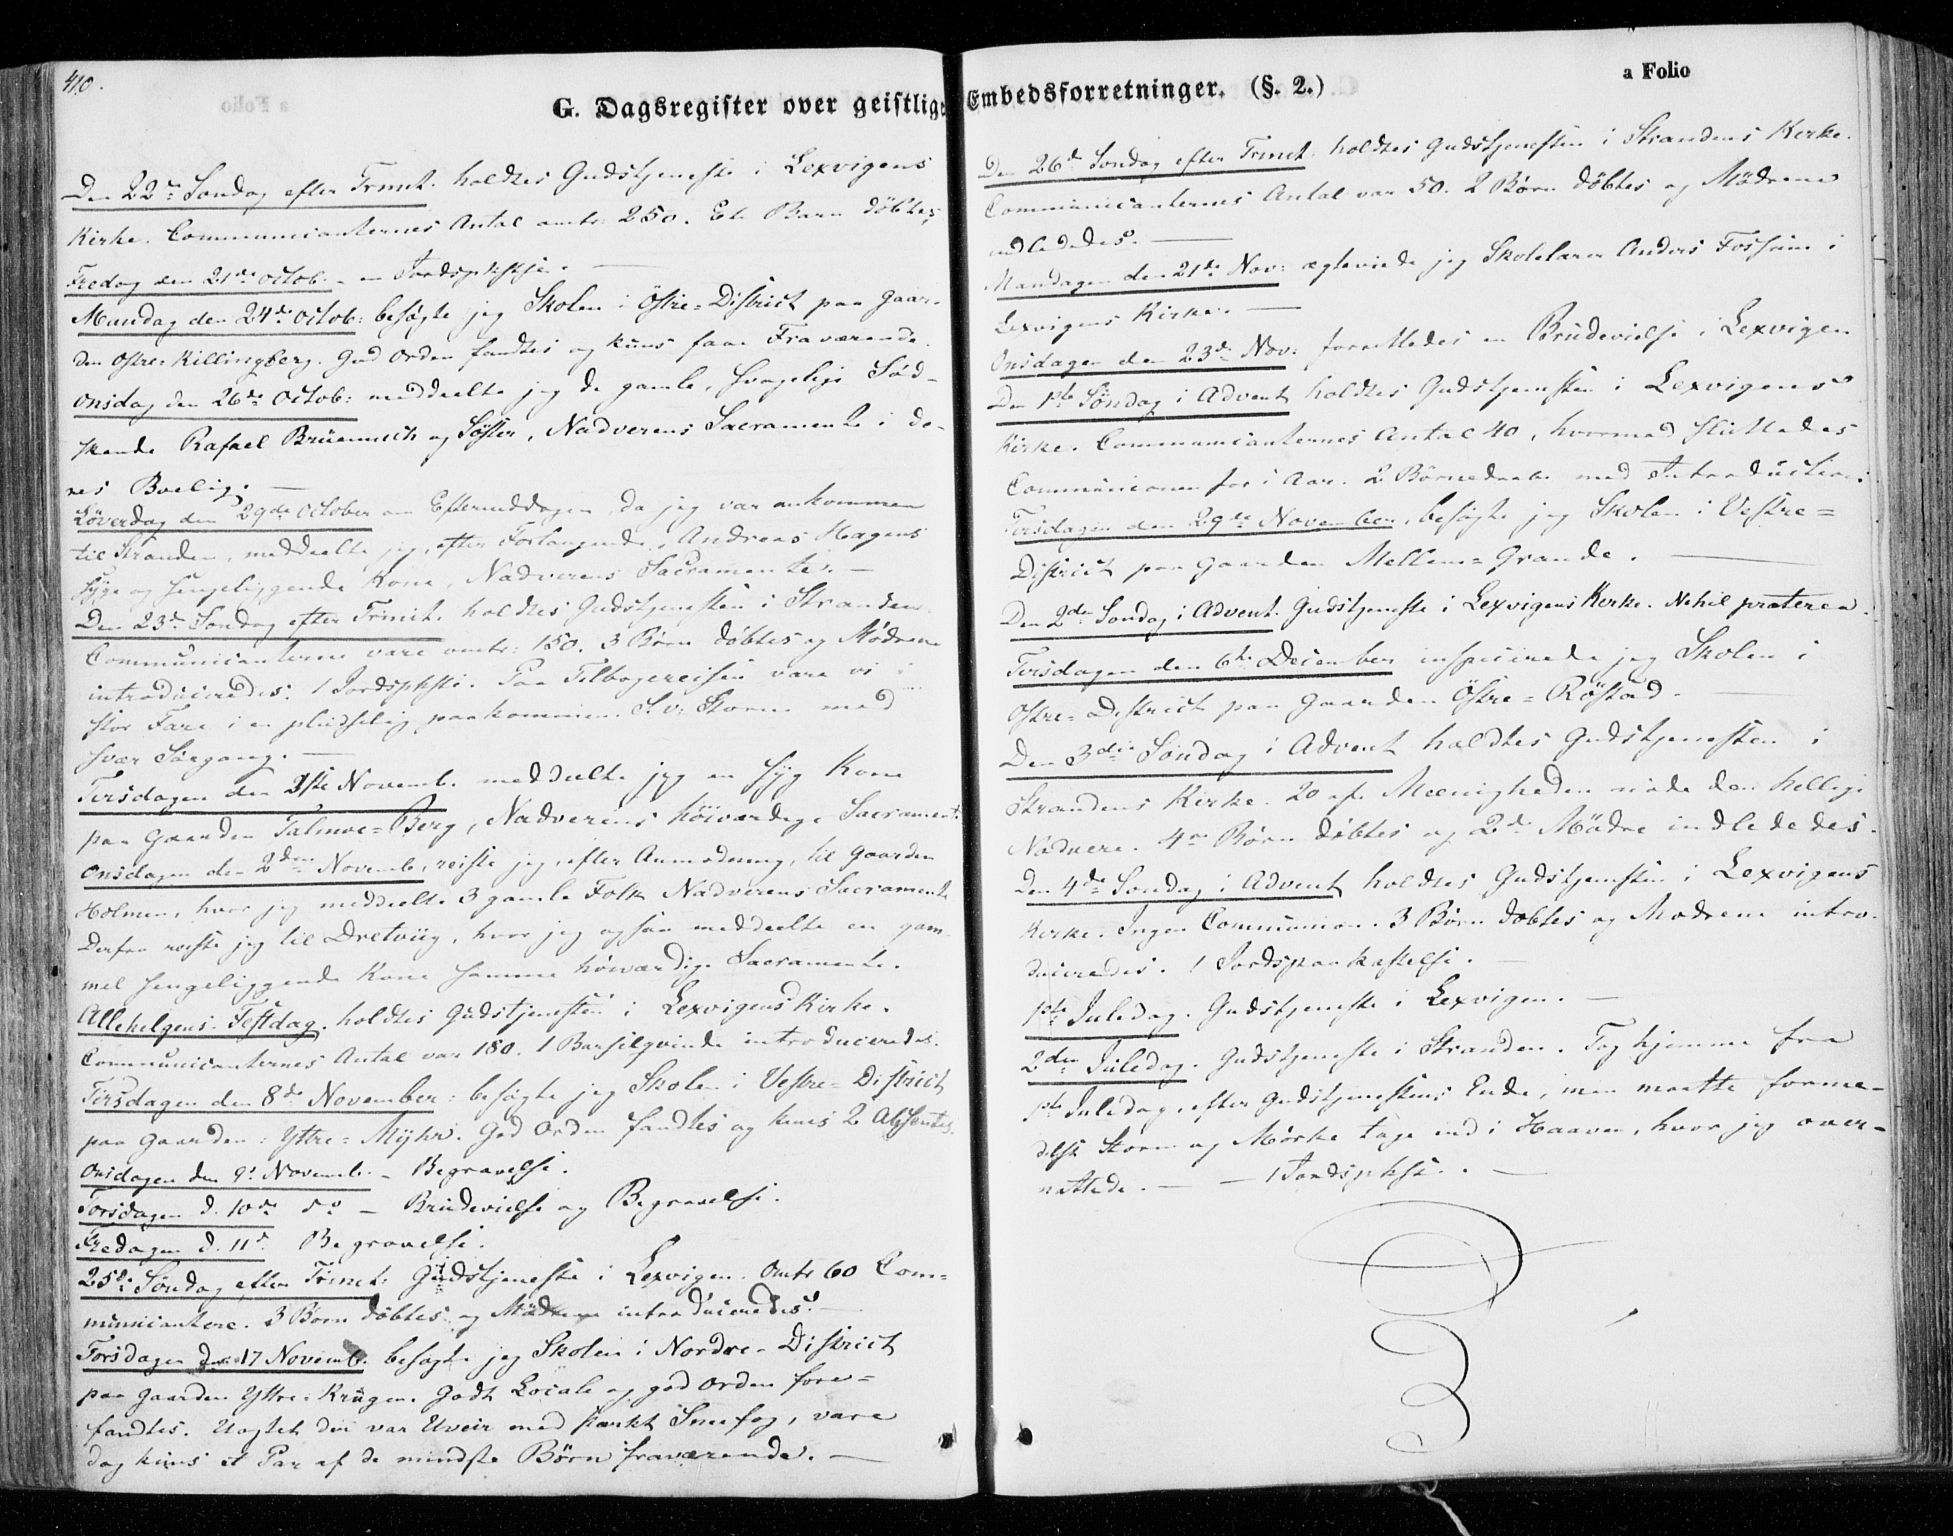 410.
a Folio
G. Dagsregister over geistlige Embedsforretninger. (§. 2.)
Den 22de Søndag efter Trinit. holdtes Gudstjeneste i Lexvigens
Kirke. Communicanternes Antal omtr: 250. Et Barn døbtes,
Fredag den 21de Octob. - en Jordspkftse.
Mandag den 24de Octob: besøgte jeg Skolen i Østre-District paa Gaar-
den Østre-Killingberg. God Orden fandtes og kuns faae Fraværende.
Onsdag den 26de Octob: meddeelte jeg de gamle, svagelige Sød-
skende Rafael Brüennich og Søster, Nadverens Sacramente i de-
res Boelig.
Løverdag den 29de October om Eftermiddagen da jeg var ankommen
til Stranden, meddeelte jeg, efter Forlangende, Andreas Hagens
syge og sengeliggende Kone, Nadverens Sacramente. —
Den 23de Søndag efter Trinit. holdtes Gudstjenesten i Stranden.
Communicanterne vare omtr: 150. 3 Børn døbtes og Mødrene
introduceredes. 1 Jordspkfte. Paa Tilbagereisen vare vi i
stor Fare i en pludselig paakommen S.v. Storm med
svær Søegang. —
Tirsdagen den 1ste Novemb. meddeelte jeg en syg Kone
paa Gaarden Salmoe-Berg, Nadverens høiværdige Sacramente.
Onsdagen den 2den Novemb. reiste jeg, efter Anmodning, til Gaarden
Holmen, hvor jeg meddeelte 3 gamle Folk Nadverens Sacramente
Derfra reiste jeg til Dretviig, hvor jeg ogsaa meddeelte en gam-
mel sengeliggende Kone samme høiværdige Sacramente.
Allehelgens-Festdag. holdtes Gudstjenesten i Lexvigens Kirke.
Communicanternes Antal var 180. 1 Barselqvinde introduceredes.
Tirsdagen den 8de November: besøgte jeg Skolen i Vestre-District
paa Gaarden: Yttre-Myhr. God Orden fandtes og kuns 2 Absentes.
Onsdagen den 9. Novemb. - Begravelse.
Torsdagen d. 10de do - Brudevielse og Begravelse.
Fredagen d. 11te Begravelse.
25de Søndag efter Trinit: Gudstjeneste i Lexvigen. Omtr 60 Com-
municantere. 3 Børn døbtes og Mødrene introduceredes. —
Torsdagen den 17 Novemb. besøgte jeg Skolen i Nordre-District
paa Gaarden Yttre-Krugen. Godt Locale og god Orden fore-
fandtes. Uagtet der var Uveir med stærkt Sneefog, vare
dog kuns et Par af de mindste Børn fraværende. —
Den 26de Søndag efter Trinit. holdtes Gudstjenesten i Strandens Kirke.
Communicanternes Antal var 50. 2 Børn døbtes og Mødrene
indledede​s. —
Mandagen den 21de Nov: ægteviede jeg Skolelærer Anders Fossum i
Lexvigens Kirke. —
Onsdagen den 23de Nov: forrettedes en Brudevielse i Lexvigen
Den 1ste Søndag i Advent holdtes Gudstjenesten i Lexvigens
Kirke. Communicanternes Antal 40, hvormed sluttedes
Communionen for i Aar. 2 Børnedaabe med Introduction.
Tirsdagen den 29de November, besøgte jeg Skolen i Vestre-
District paa Gaarden Mellem-Grande. —
Den 2den Søndag i Advent. Gudstjeneste i Lexvigens Kirke. Nihil præterea.
Tirsdagen den 6te December inspicerede jeg Skolen i
Østre-District paa Gaarden Østre-Røstad. —
Den 3die Søndag i Advent holdtes Gudstjenesten i
Strandens Kirke. 20 af Meenigheden nøde den hellige
Nadvere. 4re Børn døbtes og 2de Mødre indledede​s.
Den 4de Søndag i Advent holdtes Gudstjenesten i Lexvigens
Kirke. Ingen Communion. 3 Børn døbtes og Mødrene intro-
duceredes. 1 Jordspaakastelse. —
1ste Juledag. Gudstjeneste i Lexvigen. —
2den Juledag. Gudstjeneste i Stranden. Tog hjemme fra
1ste Juledag, efter Gudstjenestens Ende, men maatte forme-
delst Storm og Mørke tage ind i Haaven, hvor jeg over-
nattede. — — 1 Jordspkfte. —